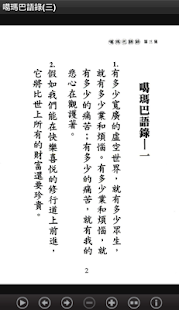 噶瑪巴語錄(三)
噶瑪巴語錄 第三集
噶瑪巴語錄—一
1.有多少寬廣的虛空世界，就有多少眾生，
就有多少業和煩惱。有多少業和煩惱，就
有多少的痛苦；有多少的痛苦，就有我的
悲心在觀護著。
2.假如我們能在快樂喜悅的修行道上前進，
它將比世上所有的財富還要珍貴。
2